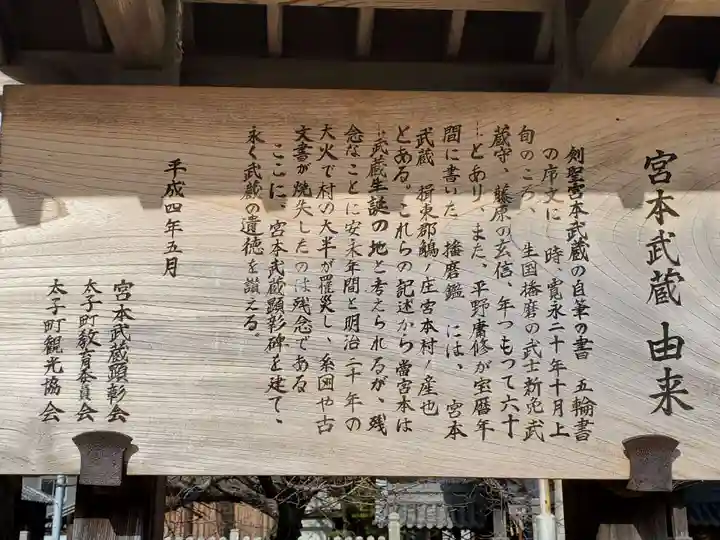 宮本武蔵 由来
剣聖宮本武蔵の自筆の書 五輪書
の序文に 時、寛永二十年十月上
旬のころ、 生国播磨の武士新免武
蔵守、藤原の玄信、年つもつて六十
…とあり、また、平野庸修が宝暦年
間に書いた 播磨鑑 には、 宮本
武蔵 揖東郡鵤ノ庄宮本村ノ産也
とある。これらの記述から當宮本は
武蔵生誕の地と考えられるが、残
念なことに安永年間と明治二十年の
大火で村の大半が罹災し、系図や古
文書が焼失したのは残念である
ここに、宮本武蔵顕彰碑を建て、
永く武蔵の遺徳を讃える。
平成四年五月
宮本武蔵顕彰会
太子町教育委員会
太子町観光協会